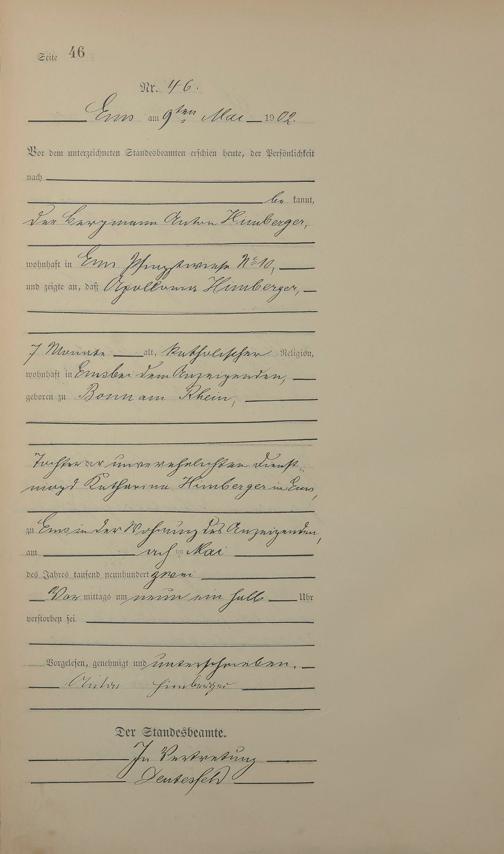 Seite 46
Nr. 46.
Ems am 9ten Mai 1902.
Vor dem unterzeichneten Standesbeamten erschien heute, der Persönlichkeit
nach
be kannt,
der Bergmann Anton Himberger,
wohnhaft in Ems Pfingstwiese No 10,
und zeigte an, daß Apollonia Himberger,
7 Monate alt, katholischer Religion,
wohnhaft in Ems bei dem Anzeigenden,
geboren zu Bonn am Rhein,
Tochter der unverehelichten Dienst-
magd Katharina Himberger in Ems,
zu Ems in der Wohnung des Anzeigenden,
am acht Mai
des Jahres tausend neunhundert zwei
Vor mittags um neun ein halb Uhr
verstorben sei
Vorgelesen, genehmigt und unterschrieben.
Anton Himberger
Der Standesbeamte.
In Vertretung